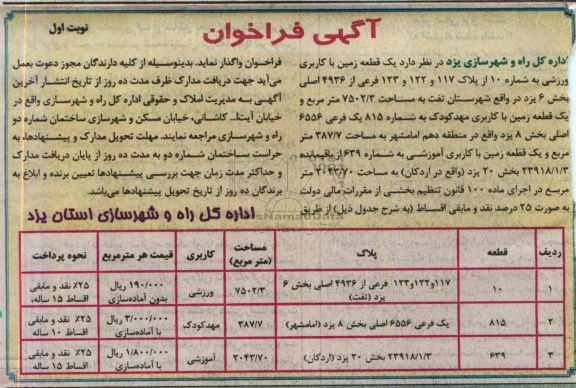 آگهی فراخوان
نوبت اول
اداره کل راه و شهرسازی یزد در نظر دارد یک قطعه زمین با کاربری
ورزشی به شماره ۱۰ از پلاک ۱۱۷ و ۱۲۲ و ۱۲۳ فرعی از ۴۹۳۶ اصلی
بخش ۶ یزد در واقع شهرستان تفت به مساحت ۷۵۰۲/۳ متر مربع و
یک قطعه زمین با کاربری مهدکودک به شماره ۸۱۵ یک فرعی ۶۵۵۶
اصلی بخش ۸ یزد واقع در منطقه دهم امامشهر به مساحت ۳۸۷/۷ متر
مربع و یک قطعه زمین با کاربری آموزشی به شماره ۶۳۹ از باقیمانده
۲۳۹۱۸/۱/۳ بخش ۲۰ یزد (واقع در اردکان) به مساحت ۲۰۴۳/۷۰ متر
مربع در اجرای ماده ۱۰۰ قانون تنظیم بخشی از مقررات مالی دولت
به صورت ۲۵ درصد نقد و مابقی اقساط (به شرح جدول ذیل) از طریق
فراخوان واگذار نماید. بدینوسیله از کلیه دارندگان مجوز دعوت بعمل
می‌آید جهت دریافت مدارک ظرف مدت ده روز از تاریخ انتشار آخرین
آگهی به مدیریت املاک و حقوقی اداره کل راه و شهرسازی واقع در
خیابان آیت‌ا... کاشانی، خیابان مسکن و شهرسازی ساختمان شماره دو
راه و شهرسازی مراجعه نمایند. مهلت تحویل مدارک و پیشنهادها، به
حراست ساختمان شماره دو به مدت ده روز از پایان دریافت مدارک
و حداکثر مدت زمان جهت بررسی پیشنهادها تعیین برنده و ابلاغ به
برندگان ده روز از تاریخ تحویل پیشنهادها می‌باشد.
اداره کل راه و شهرسازی استان یزد
ردیف قطعه پلاک مساحت (متر مربع) کاربری قیمت هر مترمربع نحوه پرداخت
۱ ۱۰ ۱۱۷و۱۲۲و۱۲۳ فرعی از ۴۹۳۶ اصلی بخش ۶ یزد (تفت) ۷۵۰۲/۳ ورزشی ۱۹۰/۰۰۰ ریال بدون آماده‌سازی ۲۵٪ نقد و مابقی اقساط ۱۵ ساله
۲ ۸۱۵ یک فرعی ۶۵۵۶ اصلی بخش ۸ یزد (امامشهر) ۳۸۷/۷ مهدکودک ۳/۰۰۰/۰۰۰ ریال با آماده‌سازی ۲۵٪ نقد و مابقی اقساط ۱۰ ساله
۳ ۶۳۹ ۲۳۹۱۸/۱/۳ بخش ۲۰ یزد (اردکان) ۲۰۴۳/۷۰ آموزشی ۱/۸۰۰/۰۰۰ ریال با آماده‌سازی ۲۵٪ نقد و مابقی اقساط ۱۵ ساله